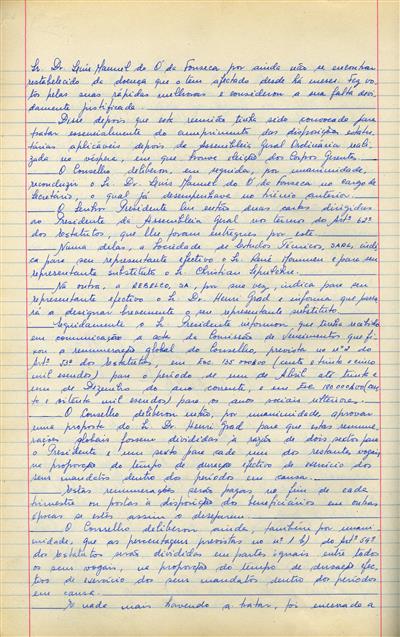 Sr. Dr. Luis Manuel do Ó da Fonseca por ainda não se encontrar
restabelecido da doença que o tem afectado desde há meses. Fez vo-
tos pelas suas rápidas melhoras e considerou a sua falta devi-
damente justificada.
Disse depois que esta reunião tinha sido convocada para
tratar essencialmente do cumprimento das disposições estatu-
tárias aplicáveis depois da Assembleia Geral Ordinária reali-
zada na véspera, em que houve eleição dos Corpos Gerentes.
O Conselho deliberou, em seguida, por unanimidade,
reconduzir o Sr. Dr. Luis Manuel do Ó da Fonseca no cargo de
Secretário, o qual já desempenhava no triénio anterior.
O Senhor Presidente leu então duas cartas dirigidas
ao Presidente da Assembleia Geral nos termos do artº 63º
dos Estatutos, que lhe foram entregues por este.
Numa delas, a Sociedade de Estudos Técnicos, SARL, indi-
ca para seu representante efectivo o Sr. René Hommen e para seu
representante substituto o Sr. Christian
Na outra, a REBELCO, SA, por sua vez, indica para seu
representante efectivo o Sr. Dr. Henri Grad e informa que passa-
rá a designar brevemente o seu representante substituto.
Seguidamente o Sr. Presidente informou que tinha recebido
em comunicação a acta da Comissão de Vencimentos que fi-
xou a remuneração global do Conselho, prevista no nº 2 do
artº 53º dos Estatutos, em Esc. 135 000$00 (cento e trinta e cinco
mil escudos) para o período de um de Abril até trinta e
um de Dezembro do ano corrente, e em Esc. 180 000$00 (cen-
to e oitenta mil escudos) para os anos sociais ulteriores.
O Conselho deliberou então, por unanimidade, aprovar
uma proposta do Sr. Dr. Henri Grad para que estas remune-
rações globais fossem divididas à razão de dois sextos para
o Presidente e um sexto para cada um dos restantes vogais,
na proporção do tempo de duração efectiva de exercício dos
seus mandatos dentro dos períodos em causa.
Estas remunerações serão pagas no fim de cada
bimestre ou postas à disposição dos beneficiários em outras
épocas se estes assim o desejarem.
O Conselho deliberou ainda, também por unani-
midade, que as percentagens previstas no nº 1 b) do artº 54º
dos Estatutos serão divididas em partes iguais entre todos
os seus vogais, na proporção do tempo de duração efec-
tiva de exercício dos seus mandatos dentro dos períodos
em causa.
E nada mais havendo a tratar, foi encerrada a